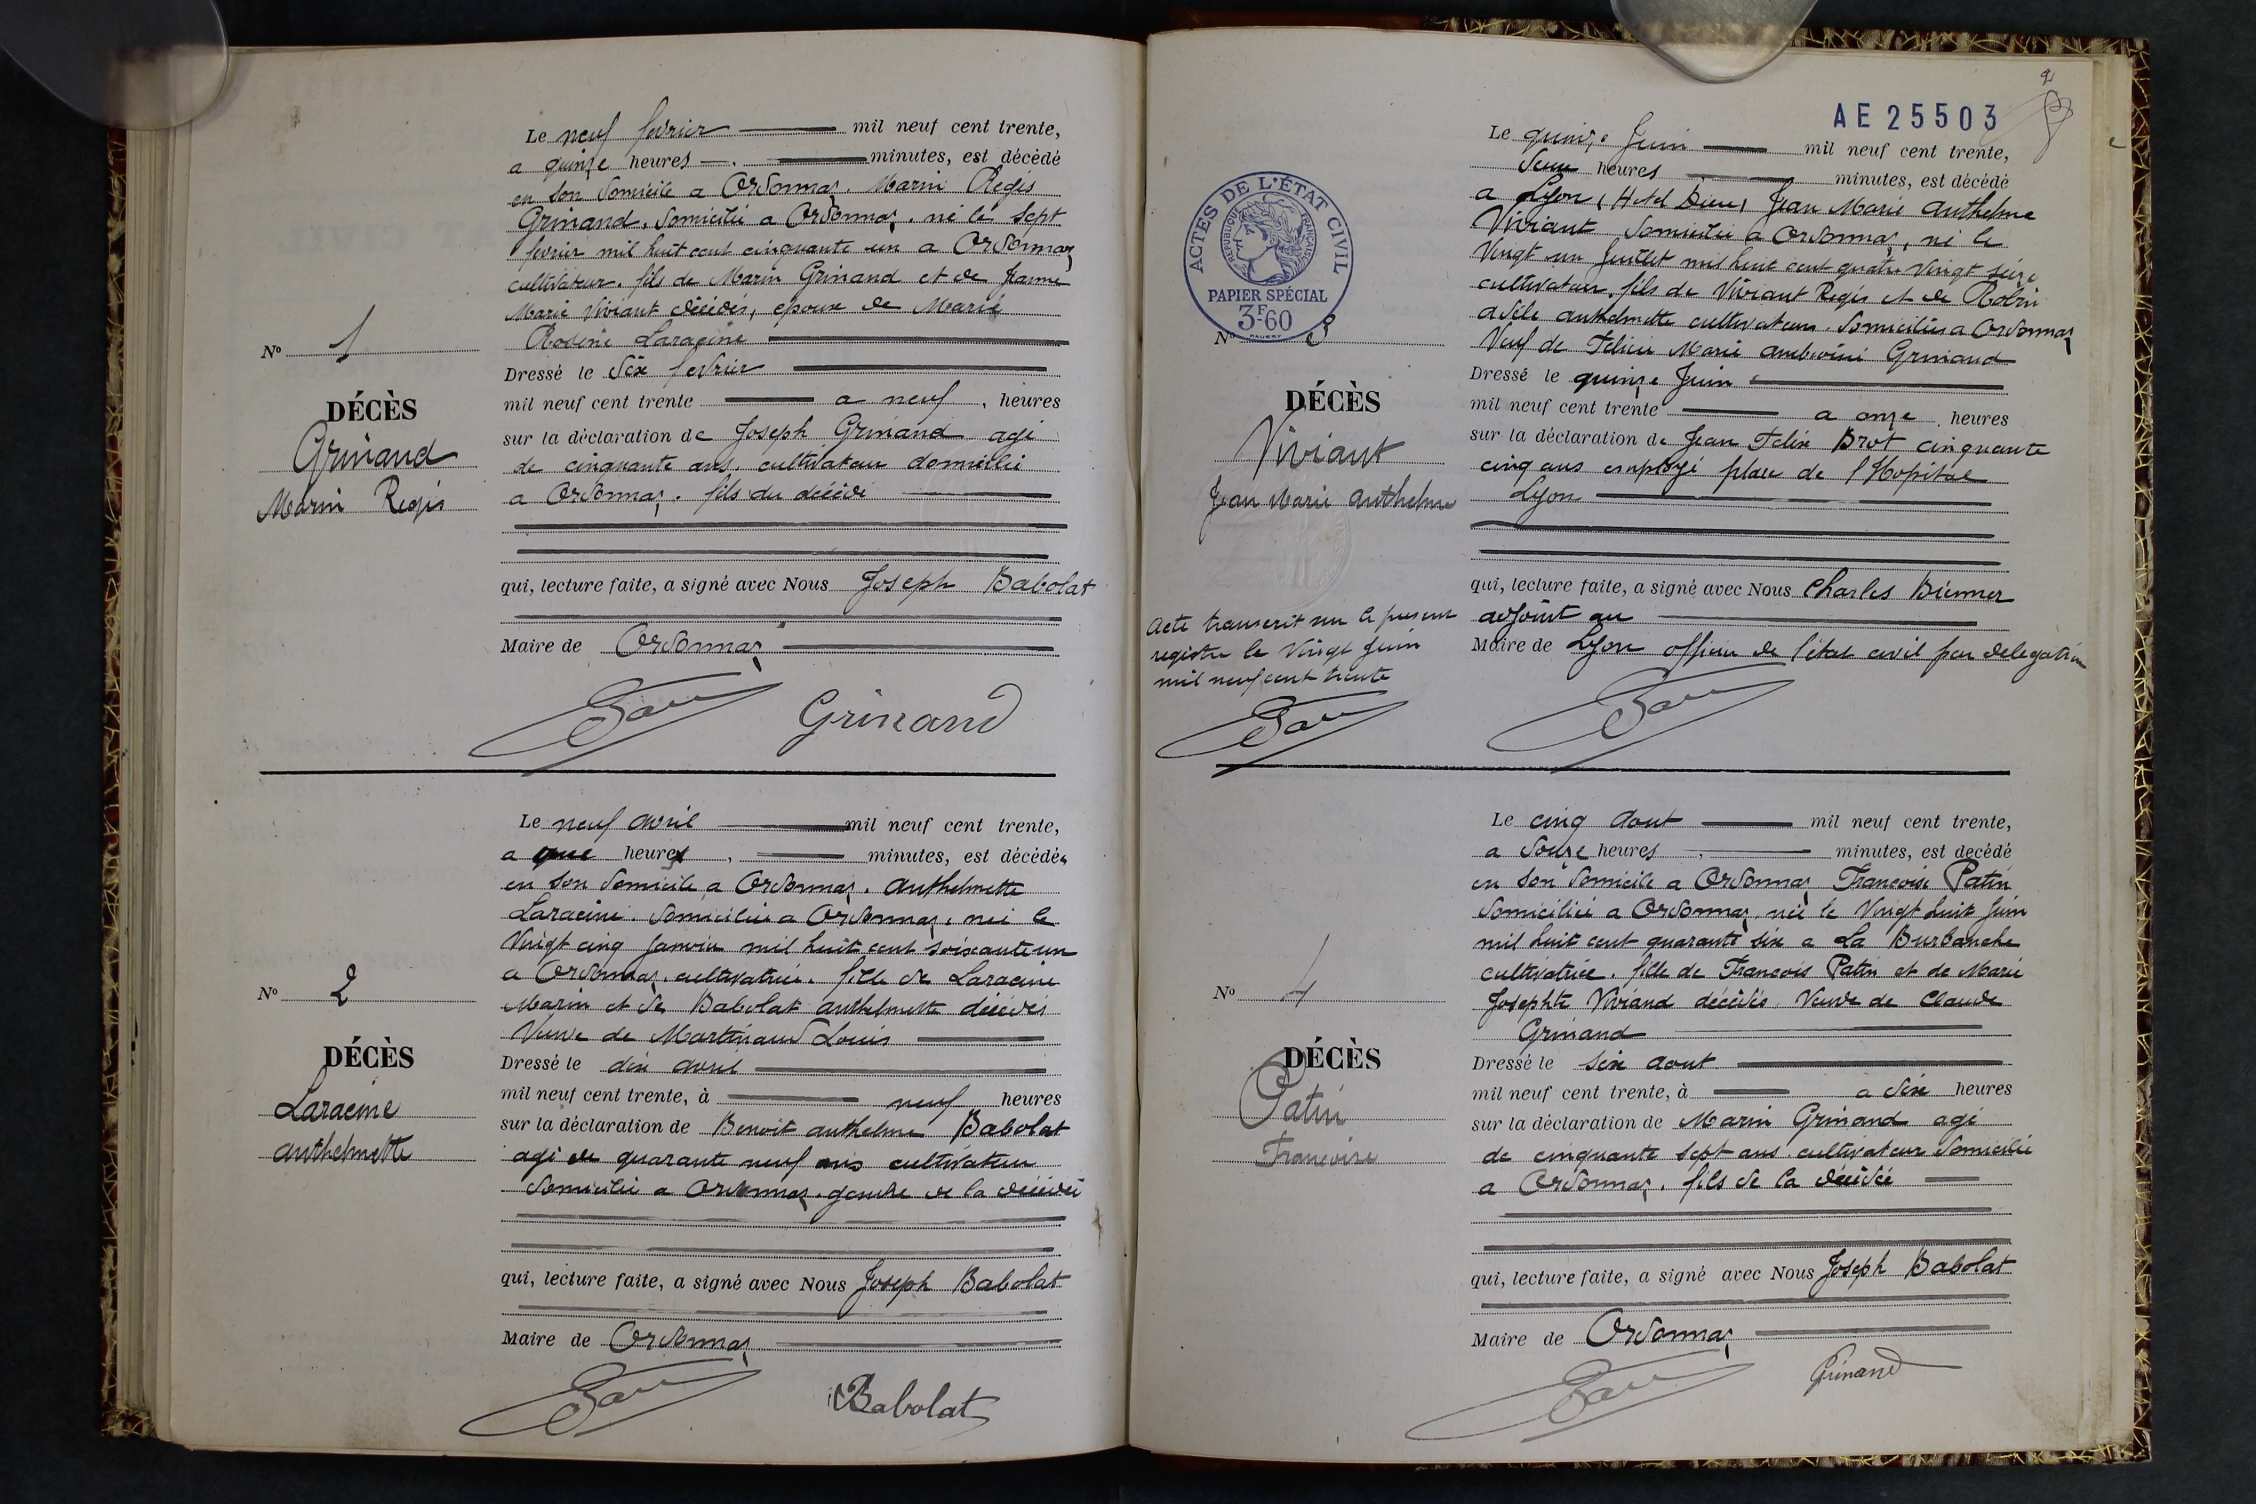 Le neuf fevrier mil neuf cent trente,
a quinze heures minutes, est décédé
en son domicile a Ordonnaz. Marin Regis
Grinand. domicilié a Ordonnaz. né le sept
fevrier mil huit cent cinquante un a Ordonnaz
cultivateur. fils de Marin Grinand et de Jeanne
Marie Viviant décédés, epoux de Marie
Rosine Laracine
Dressé le dix fevrier
mil neuf cent trente a neuf heures
sur la déclaration de Joseph Grinand agé
de cinquante ans. cultivateur domicilié
a Ordonnaz. fils du décédé
qui, lecture faite, a signé avec Nous Joseph Babolat
Maire de Ordonnaz
Grinand
No 1
DÉCÈS
Grinand
Marin Regis
Le neuf avril mil neuf cent trente,
a une heures minutes, est décédée
en son domicile a Ordonnaz. Anthelmette
Laracine. domiciliée a Ordonnaz, née le
Vingt cinq Janvier mil huit cent soixante un
a Ordonnaz. cultivatrice. fille de Laracine
Marin et de Babolat anthelmette décédés
Veuve de Martinand Louis
Dressé le dix avril
mil neuf cent trente, à neuf heures
sur la déclaration de Benoit anthelme Babolat
agé de quarante neuf ans cultivateur
domicilié a Ordonnaz. gendre de la décédée
qui, lecture faite, a signé avec Nous Joseph Babolat
Maire de Ordonnaz
Babolat
No 2
DÉCÈS
Laracine
anthelmette
2
AE 25503
ACTES DE L'ÉTAT CIVIL
RÉPUBLIQUE FRANÇAISE
PAPIER SPÉCIAL
3F60
Le quinze Juin mil neuf cent trente,
heures minutes, est décédé
a Lyon (Hotel Dieu) Jean Marie Anthelme
Viviant domicilié a Ordonnaz, né le
Vingt un Juillet mil huit cent quatre Vingt seize
cultivateur. fils de Viviant Regis et de Robin
adèle anthelmette cultivateurs. domiciliés a Ordonnaz
Veuf de Felicie Marie ambroisine Grinand
Dressé le quinze Juin
mil neuf cent trente a onze heures
sur la déclaration de Jean Felix Brot cinquante
cinq ans employé place de l'Hopital
Lyon
qui, lecture faite, a signé avec Nous Charles Bienner
adjoint au
Maire de Lyon officier de l'état civil par delegation
No 3
DÉCÈS
Viviant
Jean Marie anthelme
Acte transcrit sur le present
registre le Vingt Juin
mil neuf cent trente
Le cinq Aout mil neuf cent trente,
a douze heures minutes, est decédé
en son domicile a Ordonnaz Francoise Patin
domiciliée a Ordonnaz, née le Vingt huit Juin
mil huit cent quarante six a La Burbanche
cultivatrice. fille de François Patin et de Marie
Josephte Viviand décédés Veuve de Claude
Grinand
Dressé le six aout
mil neuf cent trente, à a dix heures
sur la déclaration de Marin Grinand agé
de cinquante sept ans. cultivateur domicilié
a Ordonnaz. fils de la décédée
qui, lecture faite, a signé avec Nous Joseph Babolat
Maire de Ordonnaz
Grinand
No 4
DÉCÈS
Patin
Francoise